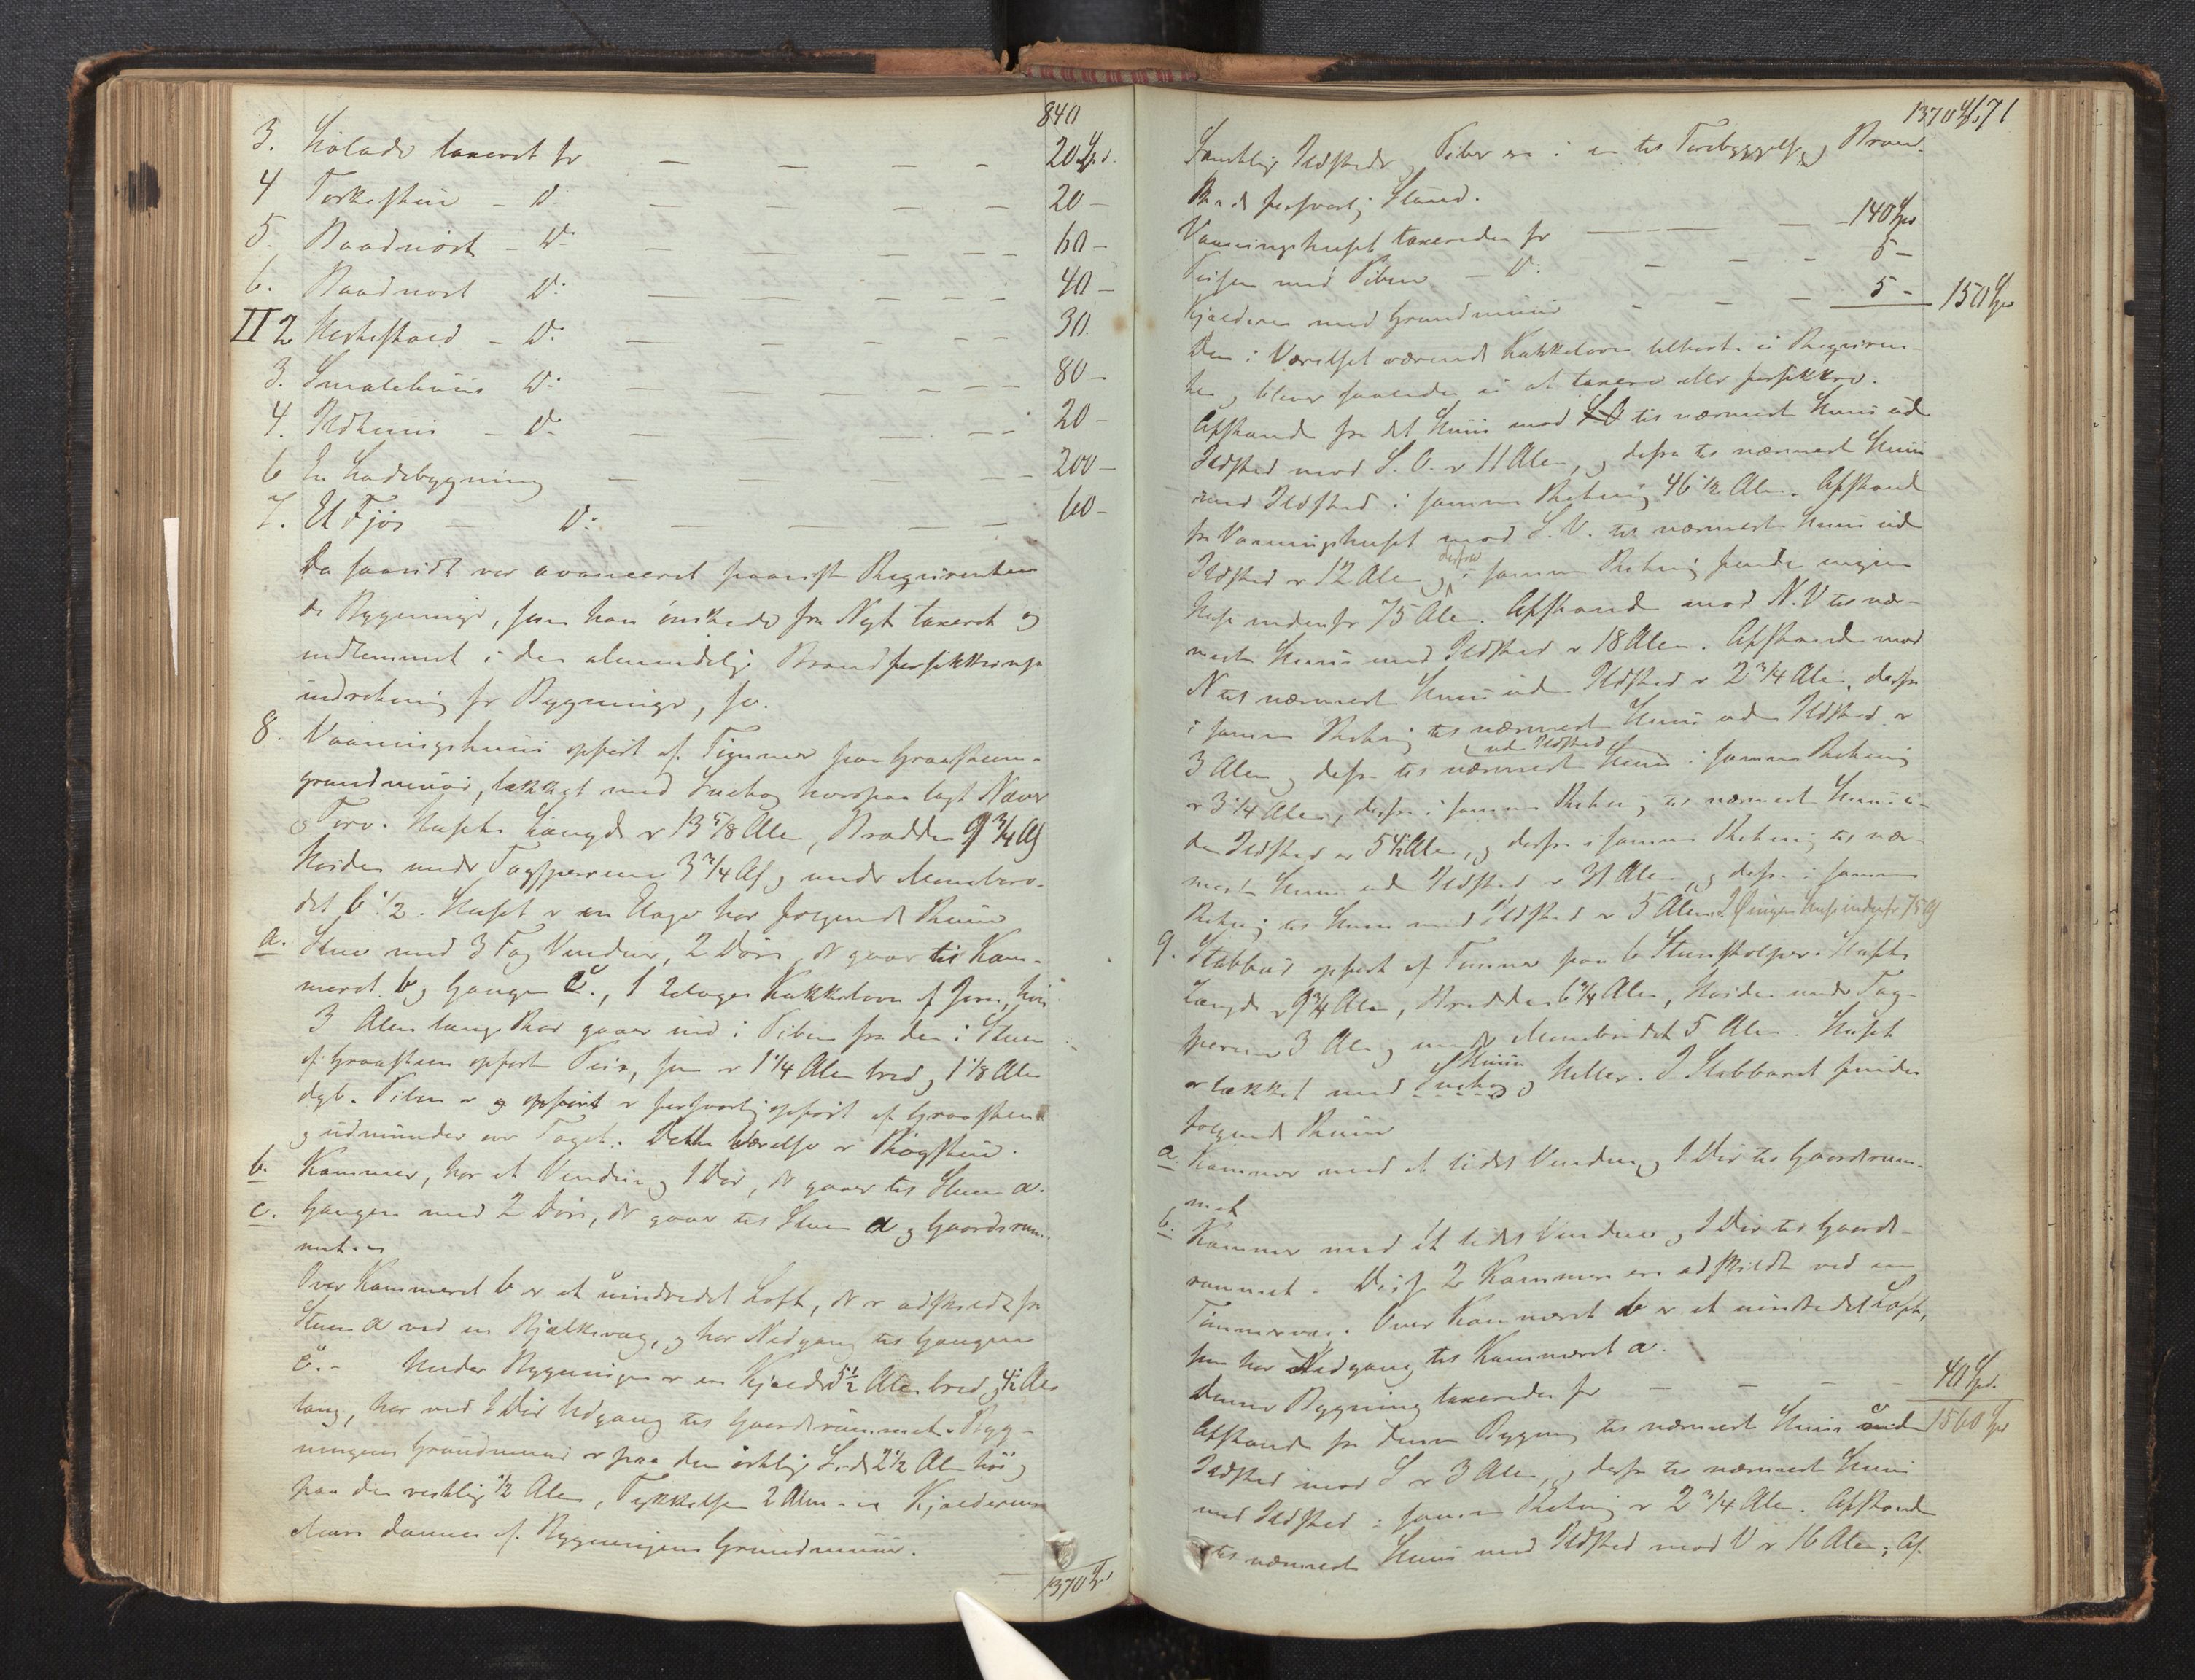 840
3. Hølade taxeret for — — — — 20 Spd.
4 Torkestue – D: — — — — 20 —
5. Baadnøst – D: — — — — 60 —
6. Baadnøst D: — — — — 40 —
II 2 Hestestald – D: — — — — 30.
3. Smalehuus D: — — — — 80 —
4. Ildhuus – D: — — — — 20 —
6 En Ladebygning — — — 200 —
7. Et Fjøs — D: — — — 60 —
Da saavidt var avanceret paaviste Requirenten
de Bygninger, som han ønskede fra Nyt taxeret og
indlemmet i den almindelige Brandforsikkrings
indretning for Bygninger, so.
8. Vaaningshuus opført af Tømmer paa Graasteens-
grundmuur, tækket med Suetag hvorpaa lagt Næver
og Torv. Husets Længde er 13 5/8 Alen, Bredden 9 3/4 Al
Høiden under Tagsperrene 3 3/4 Al og under Mønebran-
det 6 1/2. Huset er en Etage har følgende Rum
a. Stue med 3 Fag Vinduer, 2 Døre, der gaar til Kam-
meret b og Gangen c., 1 2etages Kakkelovn af Jern, hvis
3 Alen lange Rør gaaer ind i Piben fra den i Stuen
af Graasteen opførte Peis, som er 1 1/4 Alen bred og 1 1/8 Alen
dyb. Piben er og opført er forsvarlig opført af Graasteen
og udmunder over Taget. Dette Værelse er Røgstue.
b. Kammer, har et Vindue og 1 Dør, der gaaer til Stuen a.
c. Gangen med 2 Døre, der gaar til Stuen a og Gaardsrum-
met.
Over Kammeret b er et uindredet Loft, der er adskildt fra
Stuen a ved en Bjælkevæg, og har Nedgang til Gangen
c. – Under Bygningen er en Kjælder 5 1/2 Alen bred og 4 1/2 Alen
lang, har ved 1 Dør Udgang til Gaardsrummet. Byg-
ningens Grundmuur er paa den østlige Side 2 1/2 Alen høi og
paa den vestlige 1/2 Alen, Tykkelsen 2 Alen. Kjælderens
Mure dannes af Bygningens Grundmuur.
— 1370 Spd
1370 Spd 71
Samtlige Ildsteder og Piber ere i en til Forebyggelse af Brand-
forsvarlig Stand.
Vaaningshuset taxeredes for — — — 140 Spd
Peisen med Piben – D: – – – 5 –
Kjælderen med Grundmuur – – – 5 – 150 Spd
Den i Værelset værende Kakkelovn tilhører ei Requiren-
ten og bliver saaledes ei at taxere eller forsikkre.
Afstand fra det Huus mod S O til nærmeste Huus uden
Ildsted mod S. O. er 11 Alen, og derfra til nærmeste Huus
med Ildsted i samme Retning 46 1/2 Alen. Afstand
fra Vaaningshuset mod S. V. til nærmeste Huus uden
Ildsted er 12 Alen og derfra i samme Retning findes ingen
Huse indenfor 75 Alen. Afstand mod N. V til nær-
meste Huus med Ildsted er 18 Alen. Afstand mod
N til nærmeste Huus uden Ildsted er 2 3/4 Alen, derfra
i samme Retning til nærmeste Huus uden Ildsted er
3 Alen og derfra til nærmeste Huus uden Ildsted i samme Retning
er 3 1/4 Alen, derfra i samme Retning til nærmeste Huus u-
den Ildsted er 5 1/2 Alen, og derfra i samme Retning til nær-
meste Huus uden Ildsted er 31 Alen, og derfra i samme
Retning til Huus med Ildsted er 5 Alen. I Ø ingen Huse indenfor 75 Al
9. Stabbur opført af Tømmer paa 6 Steenstolper. Husets
Længde er 9 3/4 Alen, Bredden 6 3/4 Alen, Høiden under Tag-
sperrene 3 Alen og under Mønebrandet 5 Alen. Huset
er tækket med Suetag og Heller. I Stabburet findes
følgende Rum
a Kammer med et lidet Vindue og 1 Dør til Gaardsrum-
met
b. Kammer med et lidet Vindue og 1 Dør til Gaards-
rummet. Disse 2 Kammere ere adskildt ved en
Tømmervæg. Over Kammeret b er et uindredet Loft,
som har Nedgang til Kammeret a.
Denne Bygning taxeredes for — — — — 40 Spd.
Afstand fra denne Bygning til nærmeste Huus uden 1560 Spd
Ildsted mod S er 3 Alen, og derfra til nærmeste Huus
med Ildsted i samme Retning er 2 3/4 Alen. Afstand
til nærmeste Huus med Ildsted mod V er 16 Alen; Af-